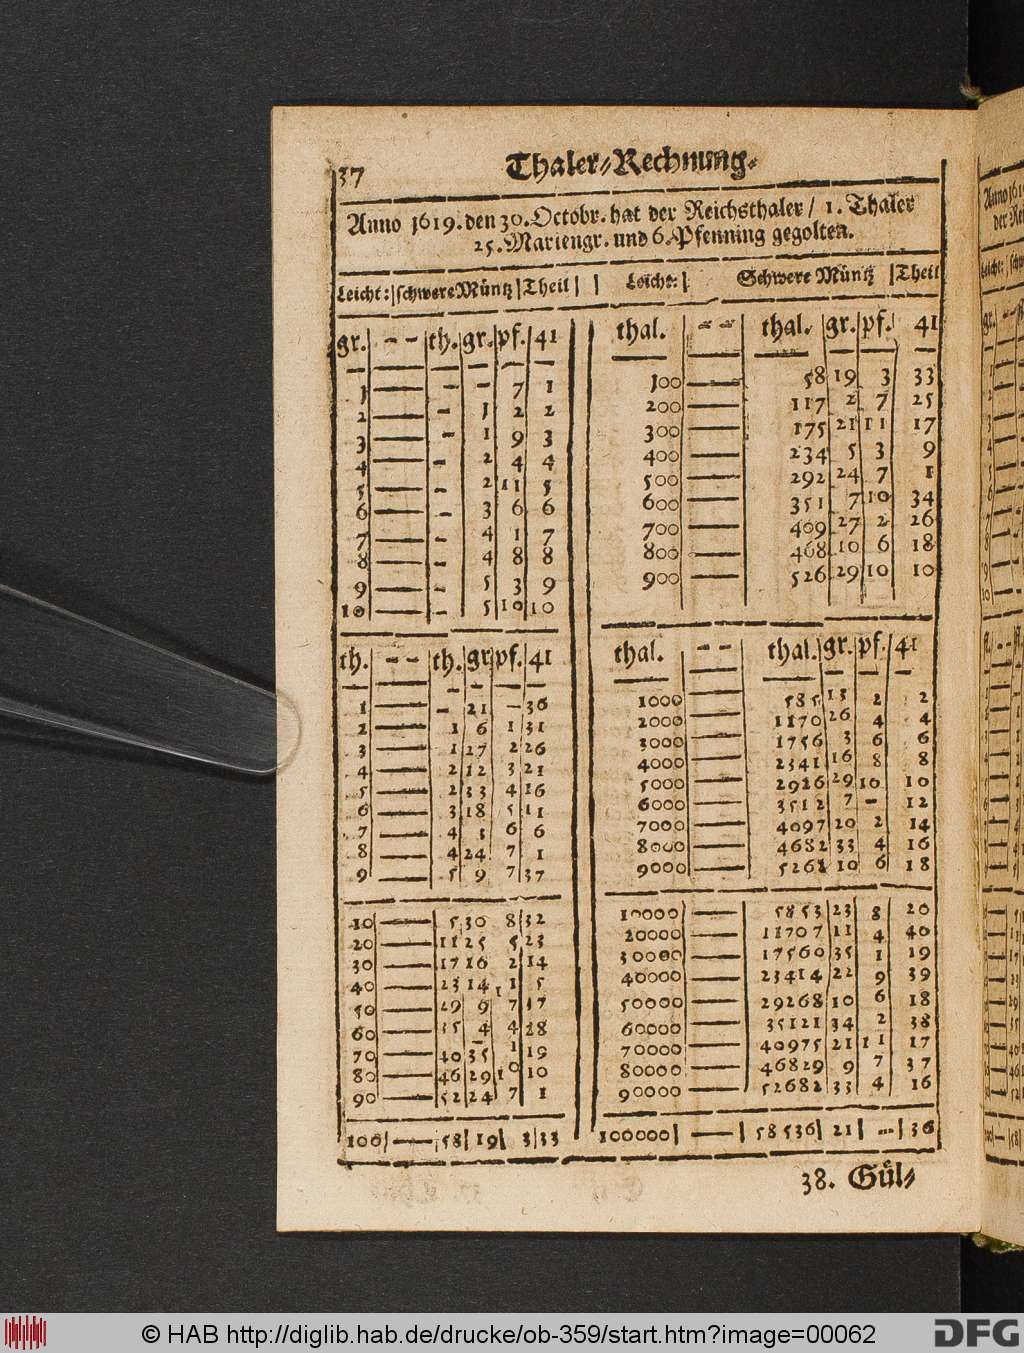 37
Thaler-Rechnung.
Anno 1619. den 30. Octobr. hat der Reichsthaler / 1. Thaler
25. Mariengr. und 6. Pfenning gegolten.
Leicht: | schwere Müntz | Theil | | Leicht: | Schwere Müntz | Theil
gr. - - th. gr. pf. 41
1 — - - 7 1
2 — - 1 2 2
3 — - 1 9 3
4 — - 2 4 4
5 — - 2 11 5
6 — - 3 6 6
7 — - 4 1 7
8 — - 4 8 8
9 — - 5 3 9
10 — - 5 10 10
th. - - th. gr. pf. 41
1 — - 21 - 36
2 — 1 6 1 31
3 — 1 27 2 26
4 — 2 12 3 21
5 — 2 33 4 16
6 — 3 18 5 11
7 — 4 3 6 6
8 — 4 24 7 1
9 — 5 9 7 37
10 — 5 30 8 32
20 — 11 25 5 23
30 — 17 16 2 14
40 — 23 14 1 5
50 — 29 9 7 37
60 — 35 4 4 28
70 — 40 35 1 19
80 — 46 29 10 10
90 — 52 24 7 1
100 — 58 19 3 33
thal. - - thal. gr. pf. 41
100 — 58 19 3 33
200 — 117 2 7 25
300 — 175 21 11 17
400 — 234 5 3 9
500 — 292 24 7 1
600 — 351 7 10 34
700 — 409 27 2 26
800 — 468 10 6 18
900 — 526 29 10 10
thal. - - thal. gr. pf. 41
1000 — 585 13 2 2
2000 — 1170 26 4 4
3000 — 1756 3 6 6
4000 — 2341 16 8 8
5000 — 2926 29 10 10
6000 — 3512 7 - 12
7000 — 4097 20 2 14
8000 — 4682 33 4 16
9000 — 5268 10 6 18
10000 — 5853 23 8 20
20000 — 11707 11 4 40
30000 — 17560 35 1 19
40000 — 23414 22 9 39
50000 — 29268 10 6 18
60000 — 35121 34 2 38
70000 — 40975 21 11 17
80000 — 46829 9 7 37
90000 — 52682 33 4 16
100000 — 58536 21 - 36
38. Gül-
© HAB http://diglib.hab.de/drucke/ob-359/start.htm?image=00062
DFG